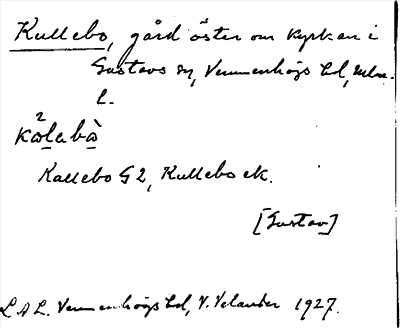 Kullebo, gård öster om kyrkan i
Gustavs sn, Vemmenhögs hd, Mlm.
l.
kɷ²lɩbò
Kallebo G2, Kullebo ek.
[Gustav]
LAL. Vemmenhögs hd, V. Velander 1927.